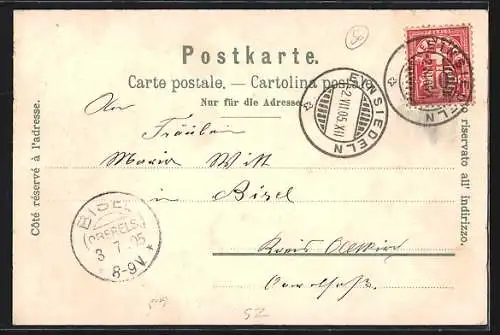 Postkarte.
Carte postale. — Cartolina postale.
Nur für die Adresse.
An
Fräulein
Maria Witt
in Bisel
Kreis Altkirch
Oberelsaß.
Côté réservé à l'adresse.
riservato all' indirizzo.
EINSIEDELN
2.VII.05.XII
EINSIEDELN
BISEL
(OBERELS.)
3 7 05
8-9V.
52